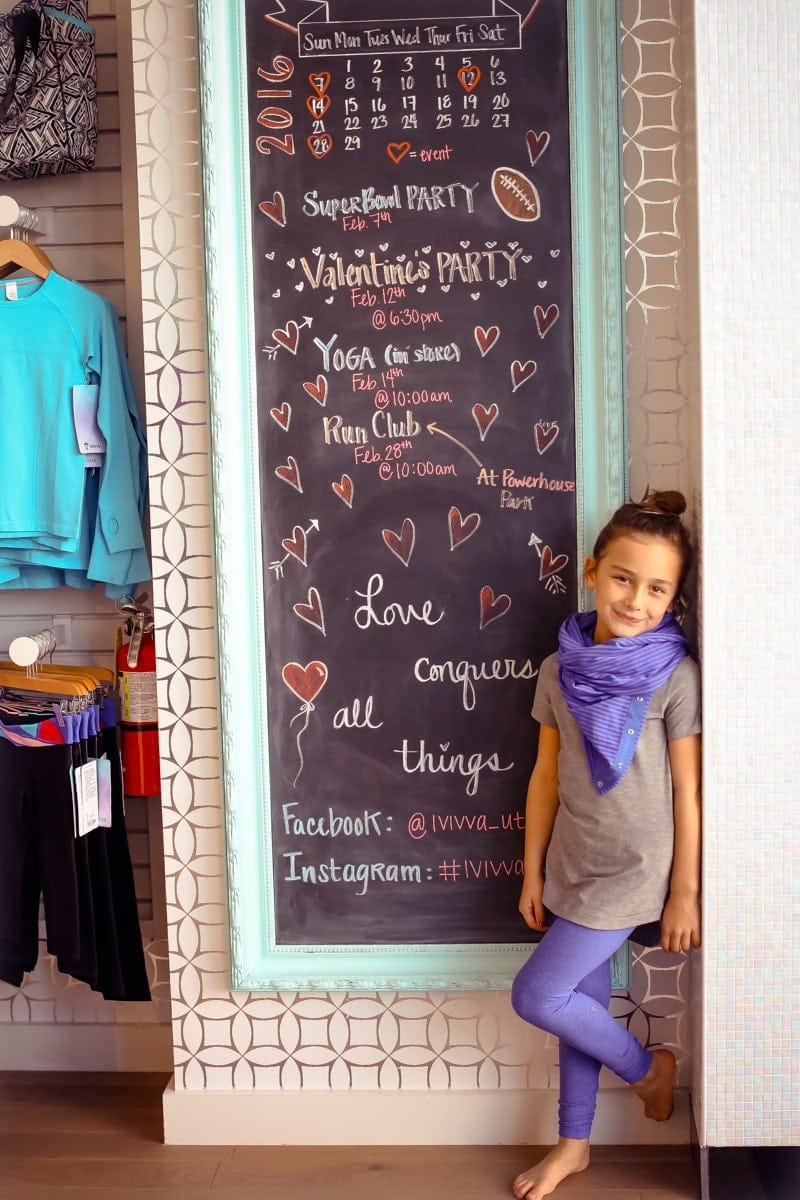 Sun Mon Tues Wed Thur Fri Sat
2016
1 2 3 4 5 6
7 8 9 10 11 12 13
14 15 16 17 18 19 20
21 22 23 24 25 26 27
28 29
= event
SuperBowl PARTY
Feb. 7th
Valentine's PARTY
Feb. 12th
@ 6:30pm
YOGA (in store)
Feb. 14th
@ 10:00am
Run Club
Feb. 28th
@ 10:00am
At Powerhouse
Park
love
Love
conquers
all
things
Facebook: @ivivva_ut
Instagram: #ivivva